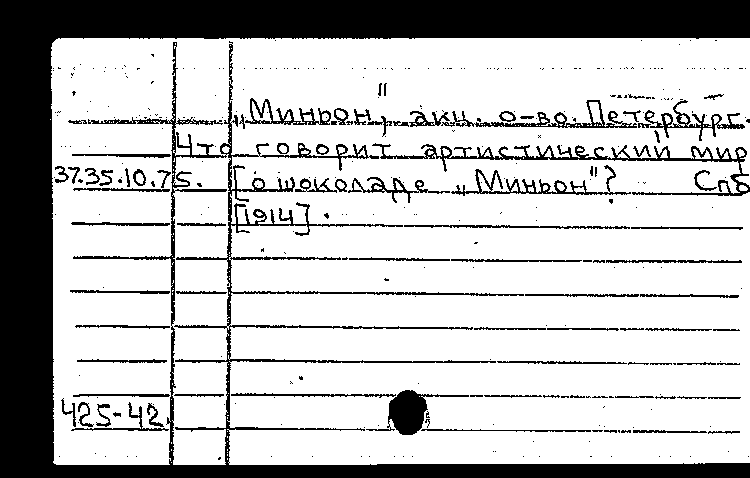 „Миньон“, акц. о-во. Петербург.
Что говорит артистический мир
37.35.10.75. [о шоколаде „Миньон“? Спб
[1914].
425-42.